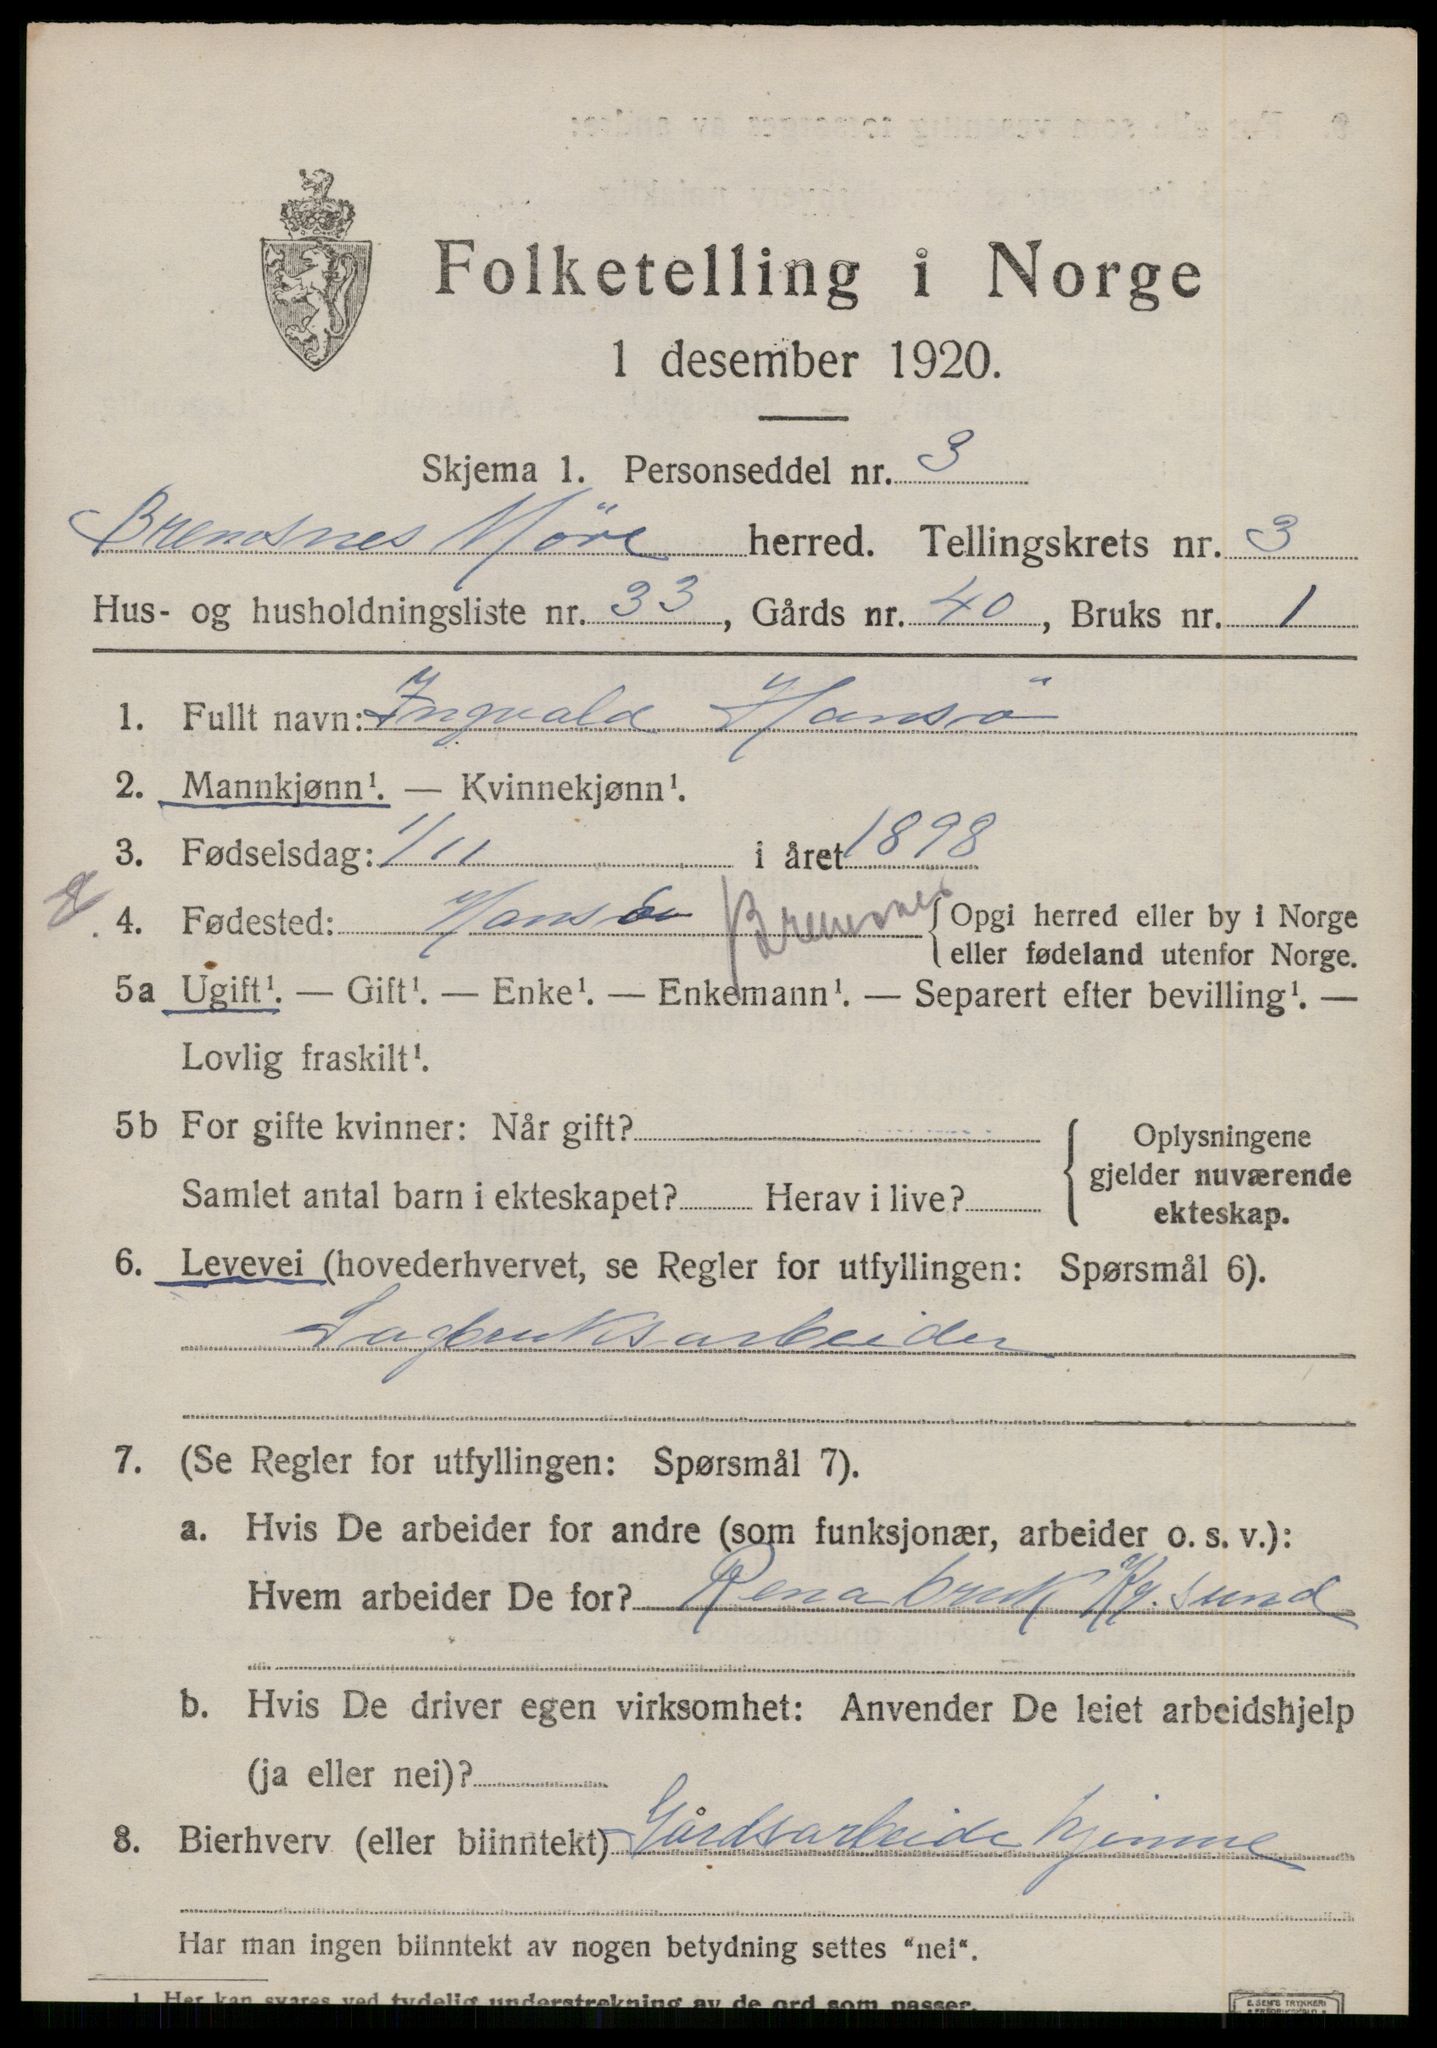 Folketelling i Norge
1 desember 1920.
Skjema 1. Personseddel nr. 3
Bremsnes Möre herred. Tellingskrets nr. 3
Hus- og husholdningsliste nr. 33, Gårds nr. 40, Bruks nr. 1
1. Fullt navn: Ingvald Hansö
2. Mannkjønn¹. — Kvinnekjønn¹.
3. Fødselsdag: 1/11 i året 1898
4. Fødested: Bremsnes { Opgi herred eller by i Norge
eller fødeland utenfor Norge.
5a Ugift¹. — Gift¹. — Enke¹. — Enkemann¹. — Separert efter bevilling¹. —
Lovlig fraskilt¹.
5b For gifte kvinner: Når gift?
Samlet antal barn i ekteskapet? Herav i live?
Oplysningene
gjelder nuværende
ekteskap.
6. Levevei (hovederhvervet, se Regler for utfyllingen: Spørsmål 6).
Sagbruksarbeider
7. (Se Regler for utfyllingen: Spørsmål 7).
a. Hvis De arbeider for andre (som funksjonær, arbeider o. s. v.):
Hvem arbeider De for? Rena bruk Kr. sund
b. Hvis De driver egen virksomhet: Anvender De leiet arbeidshjelp
(ja eller nei)?
8. Bierhverv (eller biinntekt) Gårdsarbeide hjemme
Har man ingen biinntekt av nogen betydning settes "nei".
1. Her kan svares ved tydelig understrekning av de ord som passer.